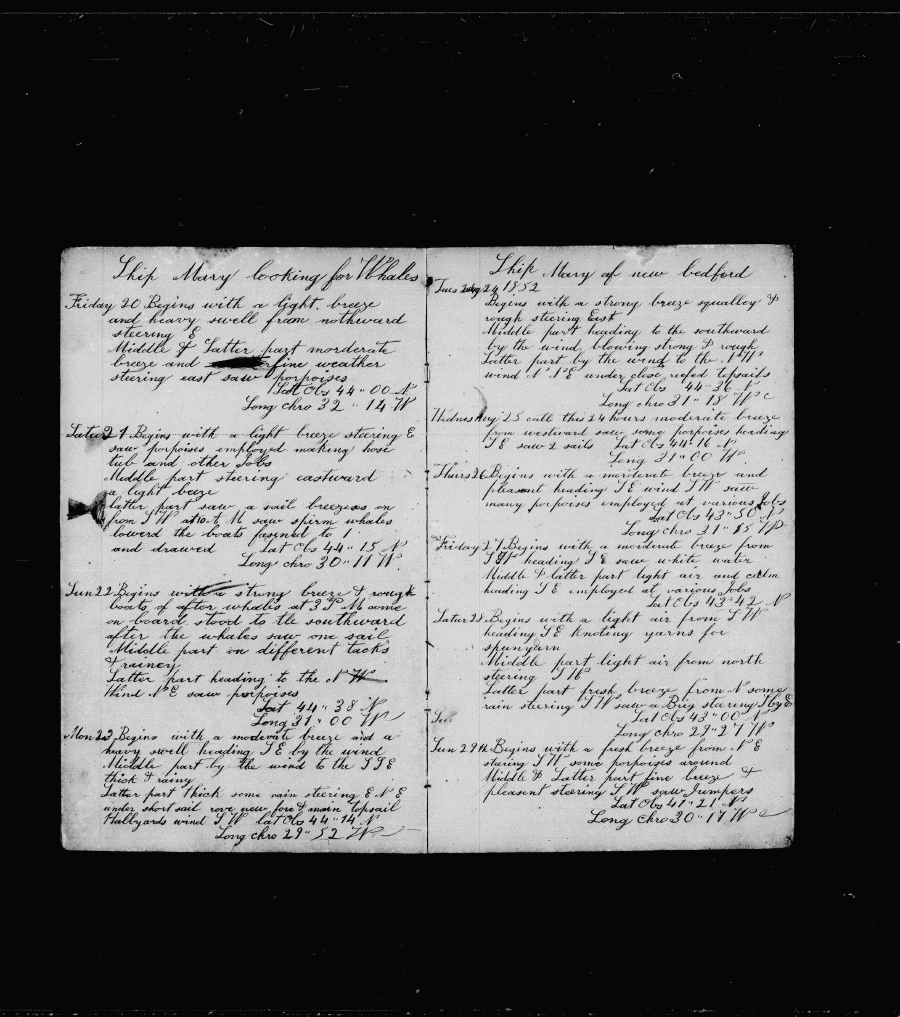 Ship Mary looking for Whales
Friday 20 Begins with a light breeze
and heavy swell from nothward
steering E
Middle & Latter part morderate
breeze and fine weather
steering east saw porpoises
Lat Obs 44 " 00 N
Long chro 32 " 14 W
Satur 21 Begins with a light breeze steering E
saw porpoises employed making hose
tub and other Jobs
Middle part steering eastward
a light beeze
latter part saw a sail breezes on
from S W at 10 A M saw spirm whales
lowerd the boats fasened to 1
and drawed Lat Obs 44 " 15 N
Long chro 30 " 11 W
Sun 22 Begins with a strong breeze & rough
boats of after whales at 3 P M come
on board stood to the southward
after the whales saw one sail
Middle part on different tacks
& rainey
Latter part heading to the N W
Wind N E saw porpoises
Lat 44 " 38 N
Long 31 " 00 W
Mon 23 Begins with a moderate breeze and a
heavy swell heading S E by the wind
Middle part by the wind to the S S E
thick & rainy
Latter part thick some rain steering E N E
under short sail rove new fore & main topsail
Hallyards wind S W lat Obs 44 " 14 N
Long chro 29 " 52 W
Ship Mary of new bedford
Tues Aug 24 1852
Begins with a strong breeze squalley &
rough steering East
Middle part heading to the southward
by the wind blowing strong & rough
Latter part by the wind to the N W
wind N N E under close refed topsails
Lat Obs 44 " 36 N
Long chro 31 " 18 W
Wednes Aug 25 call this 24 hours moderate breeze
from westward saw some porpoises heading
S E saw 2 sails Lat Obs 44 " 16 N
Long 31 " 00 W
Thurs 26 Begins with a morderate breeze and
pleasent heading S E wind S W saw
many porpoises employed at various Jobs
Lat Obs 43 " 50 N
Long chro 31 " 15 W
Friday 27 Begins with a morderate breeze from
S W heading S E saw white water
Middle & latter part light air and calm
heading S E employed at various Jobs
Lat Obs 43 " 42 N
Satur 28 Begins with a light air from S W
heading S E knoting yarns for
spunyarn
Middle part light air from north
steering S W
Latter part fresh breeze from N some
rain steering S W saw a Brig steering S by E
Lat Obs 43 " 00 N
Long chro 29 " 27 W
Sun 29th Begins with a fresh breeze from N E
steering S W some porpoises around
Middle & Latter part fine breeze &
pleasent steering S W saw Jumpers
Lat Obs 41 " 21 N
Long chro 30 " 17 W